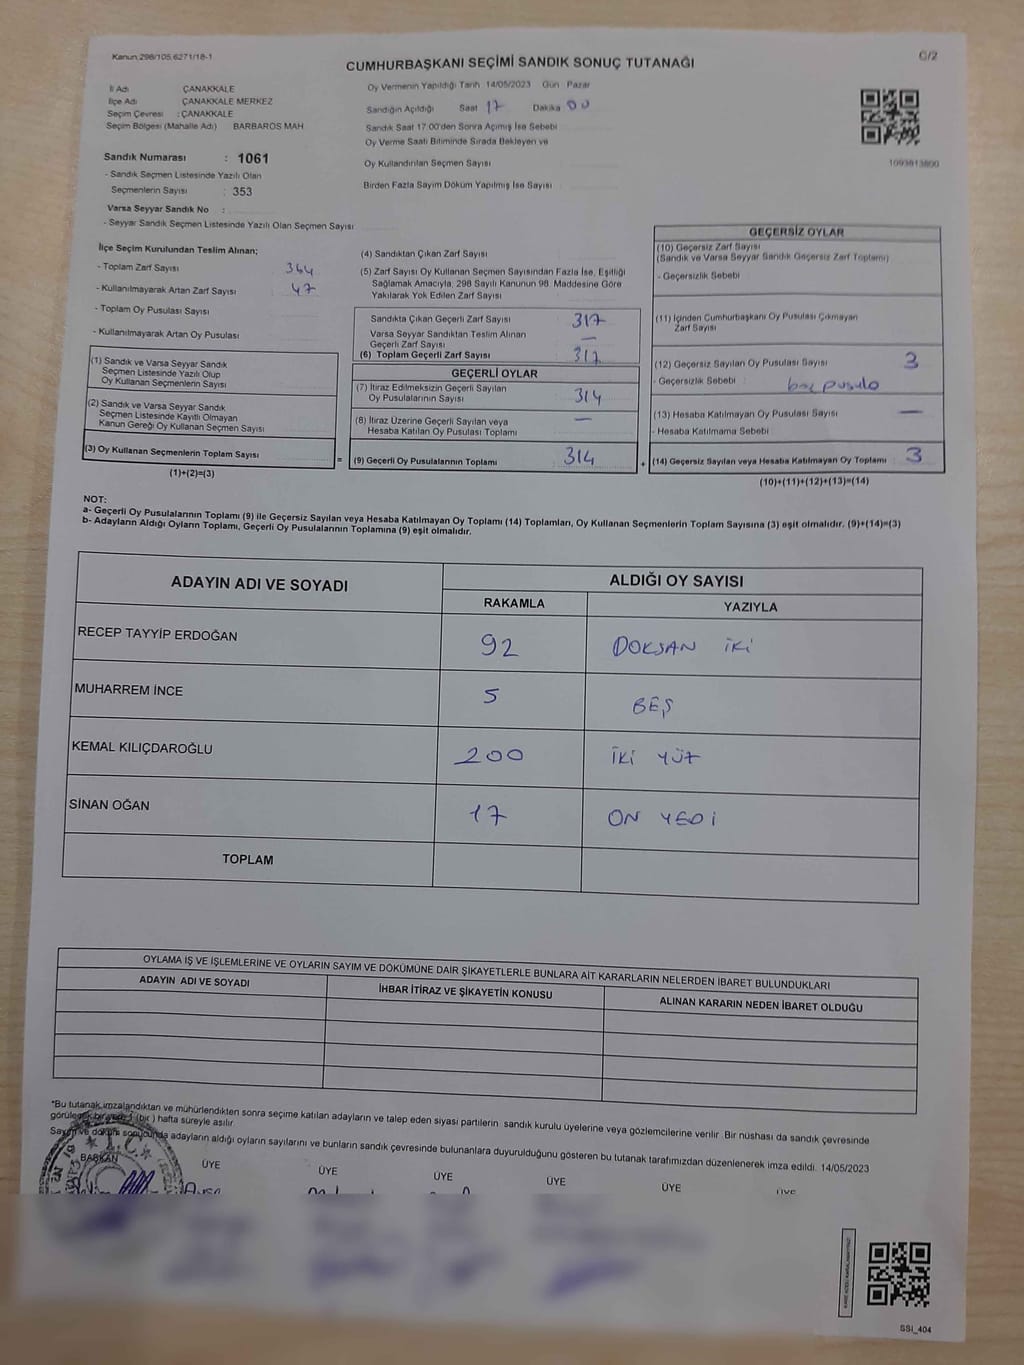 Kanun:298/105,6271/18-1
C/2
CUMHURBAŞKANI SEÇİMİ SANDIK SONUÇ TUTANAĞI
İl Adı ÇANAKKALE
İlçe Adı ÇANAKKALE MERKEZ
Seçim Çevresi : ÇANAKKALE
Seçim Bölgesi (Mahalle Adı) BARBAROS MAH
Oy Vermenin Yapıldığı Tarih 14/05/2023 Gün Pazar
Sandığın Açıldığı Saat 17 Dakika 00
Sandık Saat 17:00'den Sonra Açılmış İse Sebebi
Oy Verme Saati Bitiminde Sırada Bekleyen ve
Oy Kullandırılan Seçmen Sayısı
Birden Fazla Sayım Döküm Yapılmış İse Sayısı
1093813800
Sandık Numarası : 1061
- Sandık Seçmen Listesinde Yazılı Olan
Seçmenlerin Sayısı : 353
Varsa Seyyar Sandık No :
- Seyyar Sandık Seçmen Listesinde Yazılı Olan Seçmen Sayısı
İlçe Seçim Kurulundan Teslim Alınan;
- Toplam Zarf Sayısı 364
- Kullanılmayarak Artan Zarf Sayısı 47
- Toplam Oy Pusulası Sayısı
- Kullanılmayarak Artan Oy Pusulası
(1) Sandık ve Varsa Seyyar Sandık
Seçmen Listesinde Yazılı Olup
Oy Kullanan Seçmenlerin Sayısı
(2) Sandık ve Varsa Seyyar Sandık
Seçmen Listesinde Kayıtlı Olmayan
Kanun Gereği Oy Kullanan Seçmen Sayısı
(3) Oy Kullanan Seçmenlerin Toplam Sayısı
(1)+(2)=(3)
(4) Sandıktan Çıkan Zarf Sayısı
(5) Zarf Sayısı Oy Kullanan Seçmen Sayısından Fazla İse, Eşitliği
Sağlamak Amacıyla, 298 Sayılı Kanunun 98. Maddesine Göre
Yakılarak Yok Edilen Zarf Sayısı
Sandıkta Çıkan Geçerli Zarf Sayısı 317
Varsa Seyyar Sandıktan Teslim Alınan
Geçerli Zarf Sayısı —
(6) Toplam Geçerli Zarf Sayısı 317
GEÇERLİ OYLAR
(7) İtiraz Edilmeksizin Geçerli Sayılan
Oy Pusulalarının Sayısı 314
(8) İtiraz Üzerine Geçerli Sayılan veya
Hesaba Katılan Oy Pusulası Toplamı —
= (9) Geçerli Oy Pusulalarının Toplamı 314 +
GEÇERSİZ OYLAR
(10) Geçersiz Zarf Sayısı
(Sandık ve Varsa Seyyar Sandık Geçersiz Zarf Toplamı)
- Geçersizlik Sebebi
(11) İçinden Cumhurbaşkanı Oy Pusulası Çıkmayan
Zarf Sayısı
(12) Geçersiz Sayılan Oy Pusulası Sayısı 3
- Geçersizlik Sebebi : boş pusula
(13) Hesaba Katılmayan Oy Pusulası Sayısı —
- Hesaba Katılmama Sebebi
(14) Geçersiz Sayılan veya Hesaba Katılmayan Oy Toplamı : 3
(10)+(11)+(12)+(13)=(14)
NOT:
a- Geçerli Oy Pusulalarının Toplamı (9) ile Geçersiz Sayılan veya Hesaba Katılmayan Oy Toplamı (14) Toplamları, Oy Kullanan Seçmenlerin Toplam Sayısına (3) eşit olmalıdır. (9)+(14)=(3)
b- Adayların Aldığı Oyların Toplamı, Geçerli Oy Pusulalarının Toplamına (9) eşit olmalıdır.
ADAYIN ADI VE SOYADI
ALDIĞI OY SAYISI
RAKAMLA YAZIYLA
RECEP TAYYİP ERDOĞAN 92 DOKSAN İKİ
MUHARREM İNCE 5 BEŞ
KEMAL KILIÇDAROĞLU 200 İKİ YÜZ
SİNAN OĞAN 17 ON YEDİ
TOPLAM
OYLAMA İŞ VE İŞLEMLERİNE VE OYLARIN SAYIM VE DÖKÜMÜNE DAİR ŞİKAYETLERLE BUNLARA AİT KARARLARIN NELERDEN İBARET BULUNDUKLARI
ADAYIN ADI VE SOYADI
İHBAR İTİRAZ VE ŞİKAYETİN KONUSU
ALINAN KARARIN NEDEN İBARET OLDUĞU
*Bu tutanak imzalandıktan ve mühürlendikten sonra seçime katılan adayların ve talep eden siyasi partilerin sandık kurulu üyelerine veya gözlemcilerine verilir. Bir nüshası da sandık çevresinde
(bir) hafta süreyle asılır.
adayların aldığı oyların sayılarını ve bunların sandık çevresinde bulunanlara duyurulduğunu gösteren bu tutanak tarafımızdan düzenlenerek imza edildi. 14/05/2023
T.C.
BAŞKAN ÜYE ÜYE ÜYE ÜYE ÜYE ÜYE
SSİ_404